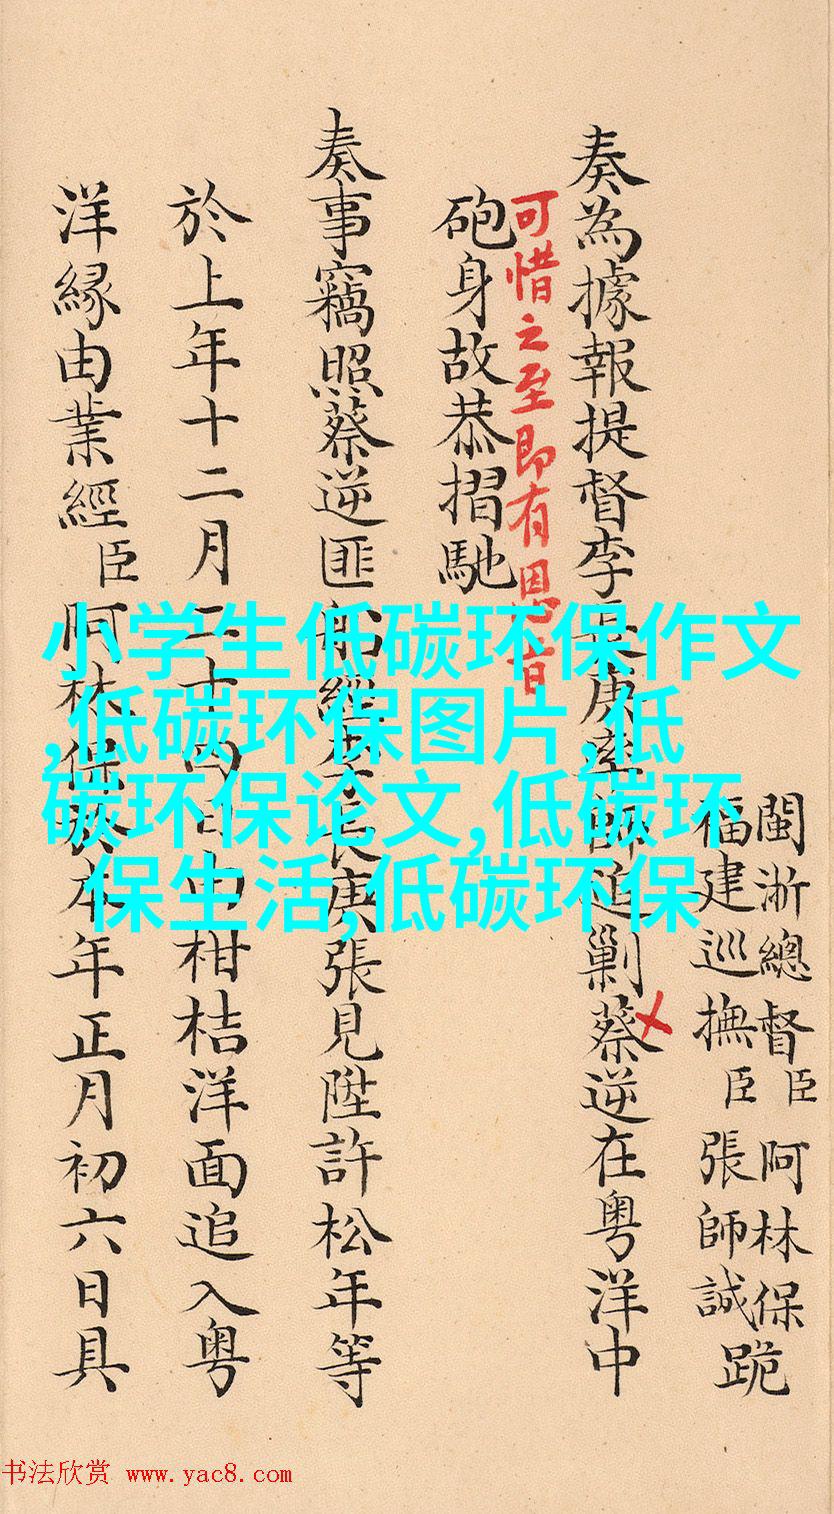 閩浙總督臣阿林保
福建巡撫臣張師誠跪
奏為據報提督李長庚師追剿蔡逆在粵洋中
可惜之至即有恩旨
砲身故恭摺馳
奏事竊照蔡逆匪船經李長庚張見陞許松年等
於上年十二月二十四日由柑桔洋面追入粵
洋緣由業經臣阿林保於本年正月初六日具
小学生低碳环保作文
,低碳环保图片,低
碳环保论文,低碳环
保生活,低碳环保
书法欣赏 www.yac8.com